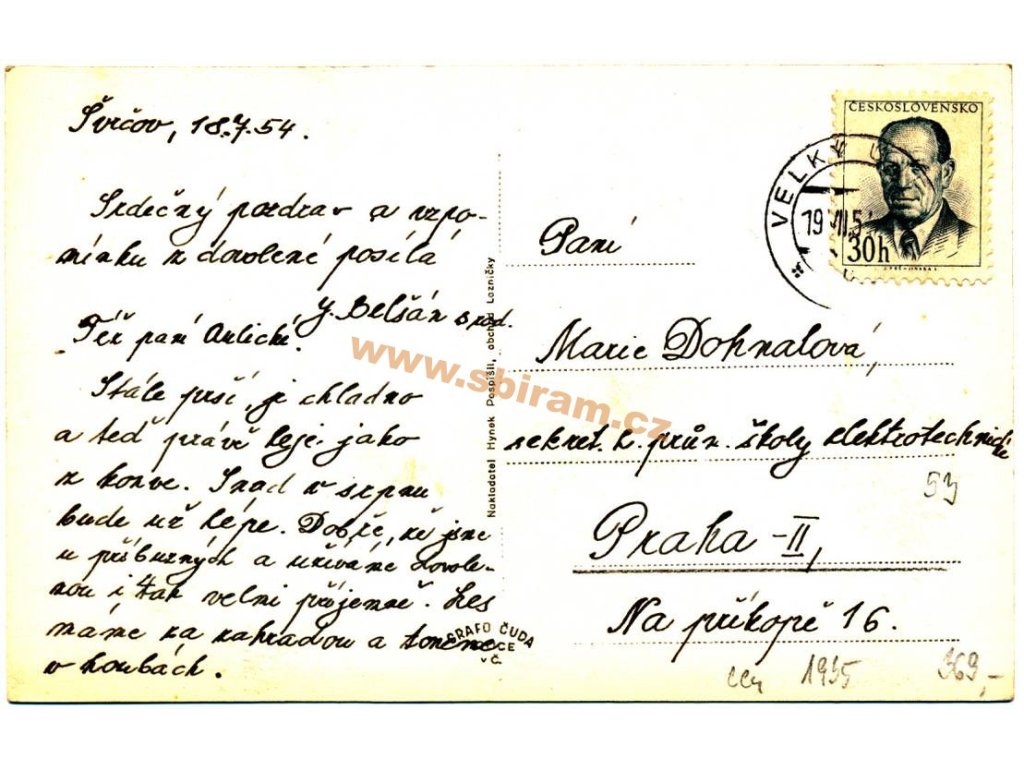 Švrčov, 18.7.54.
Srdečný pozdrav a vzpo-
mínku z dovolené posílá
J. Belšán s rod.
Též paní
Stále prší, je chladno
a teď právě leje jako
z konve. Snad v srpnu
bude už lépe. Dobře, že jsme
u příbuzných a užíváme dovole-
nou i tak velmi příjemně. Les
máme za zahradou a toneme
v houbách.
Nakladatel Hynek Pospíšil, obchod Lazničky
GRAFO ČUDA
V Č.
ČESKOSLOVENSKO
30h
VELKÝ
19 VII 5
Paní
Marie Dohnalová,
sekret. v. prům. školy elektrotechnické
Praha - II,
Na příkopě 16.
53
1935
369,-
www.sbiram.cz